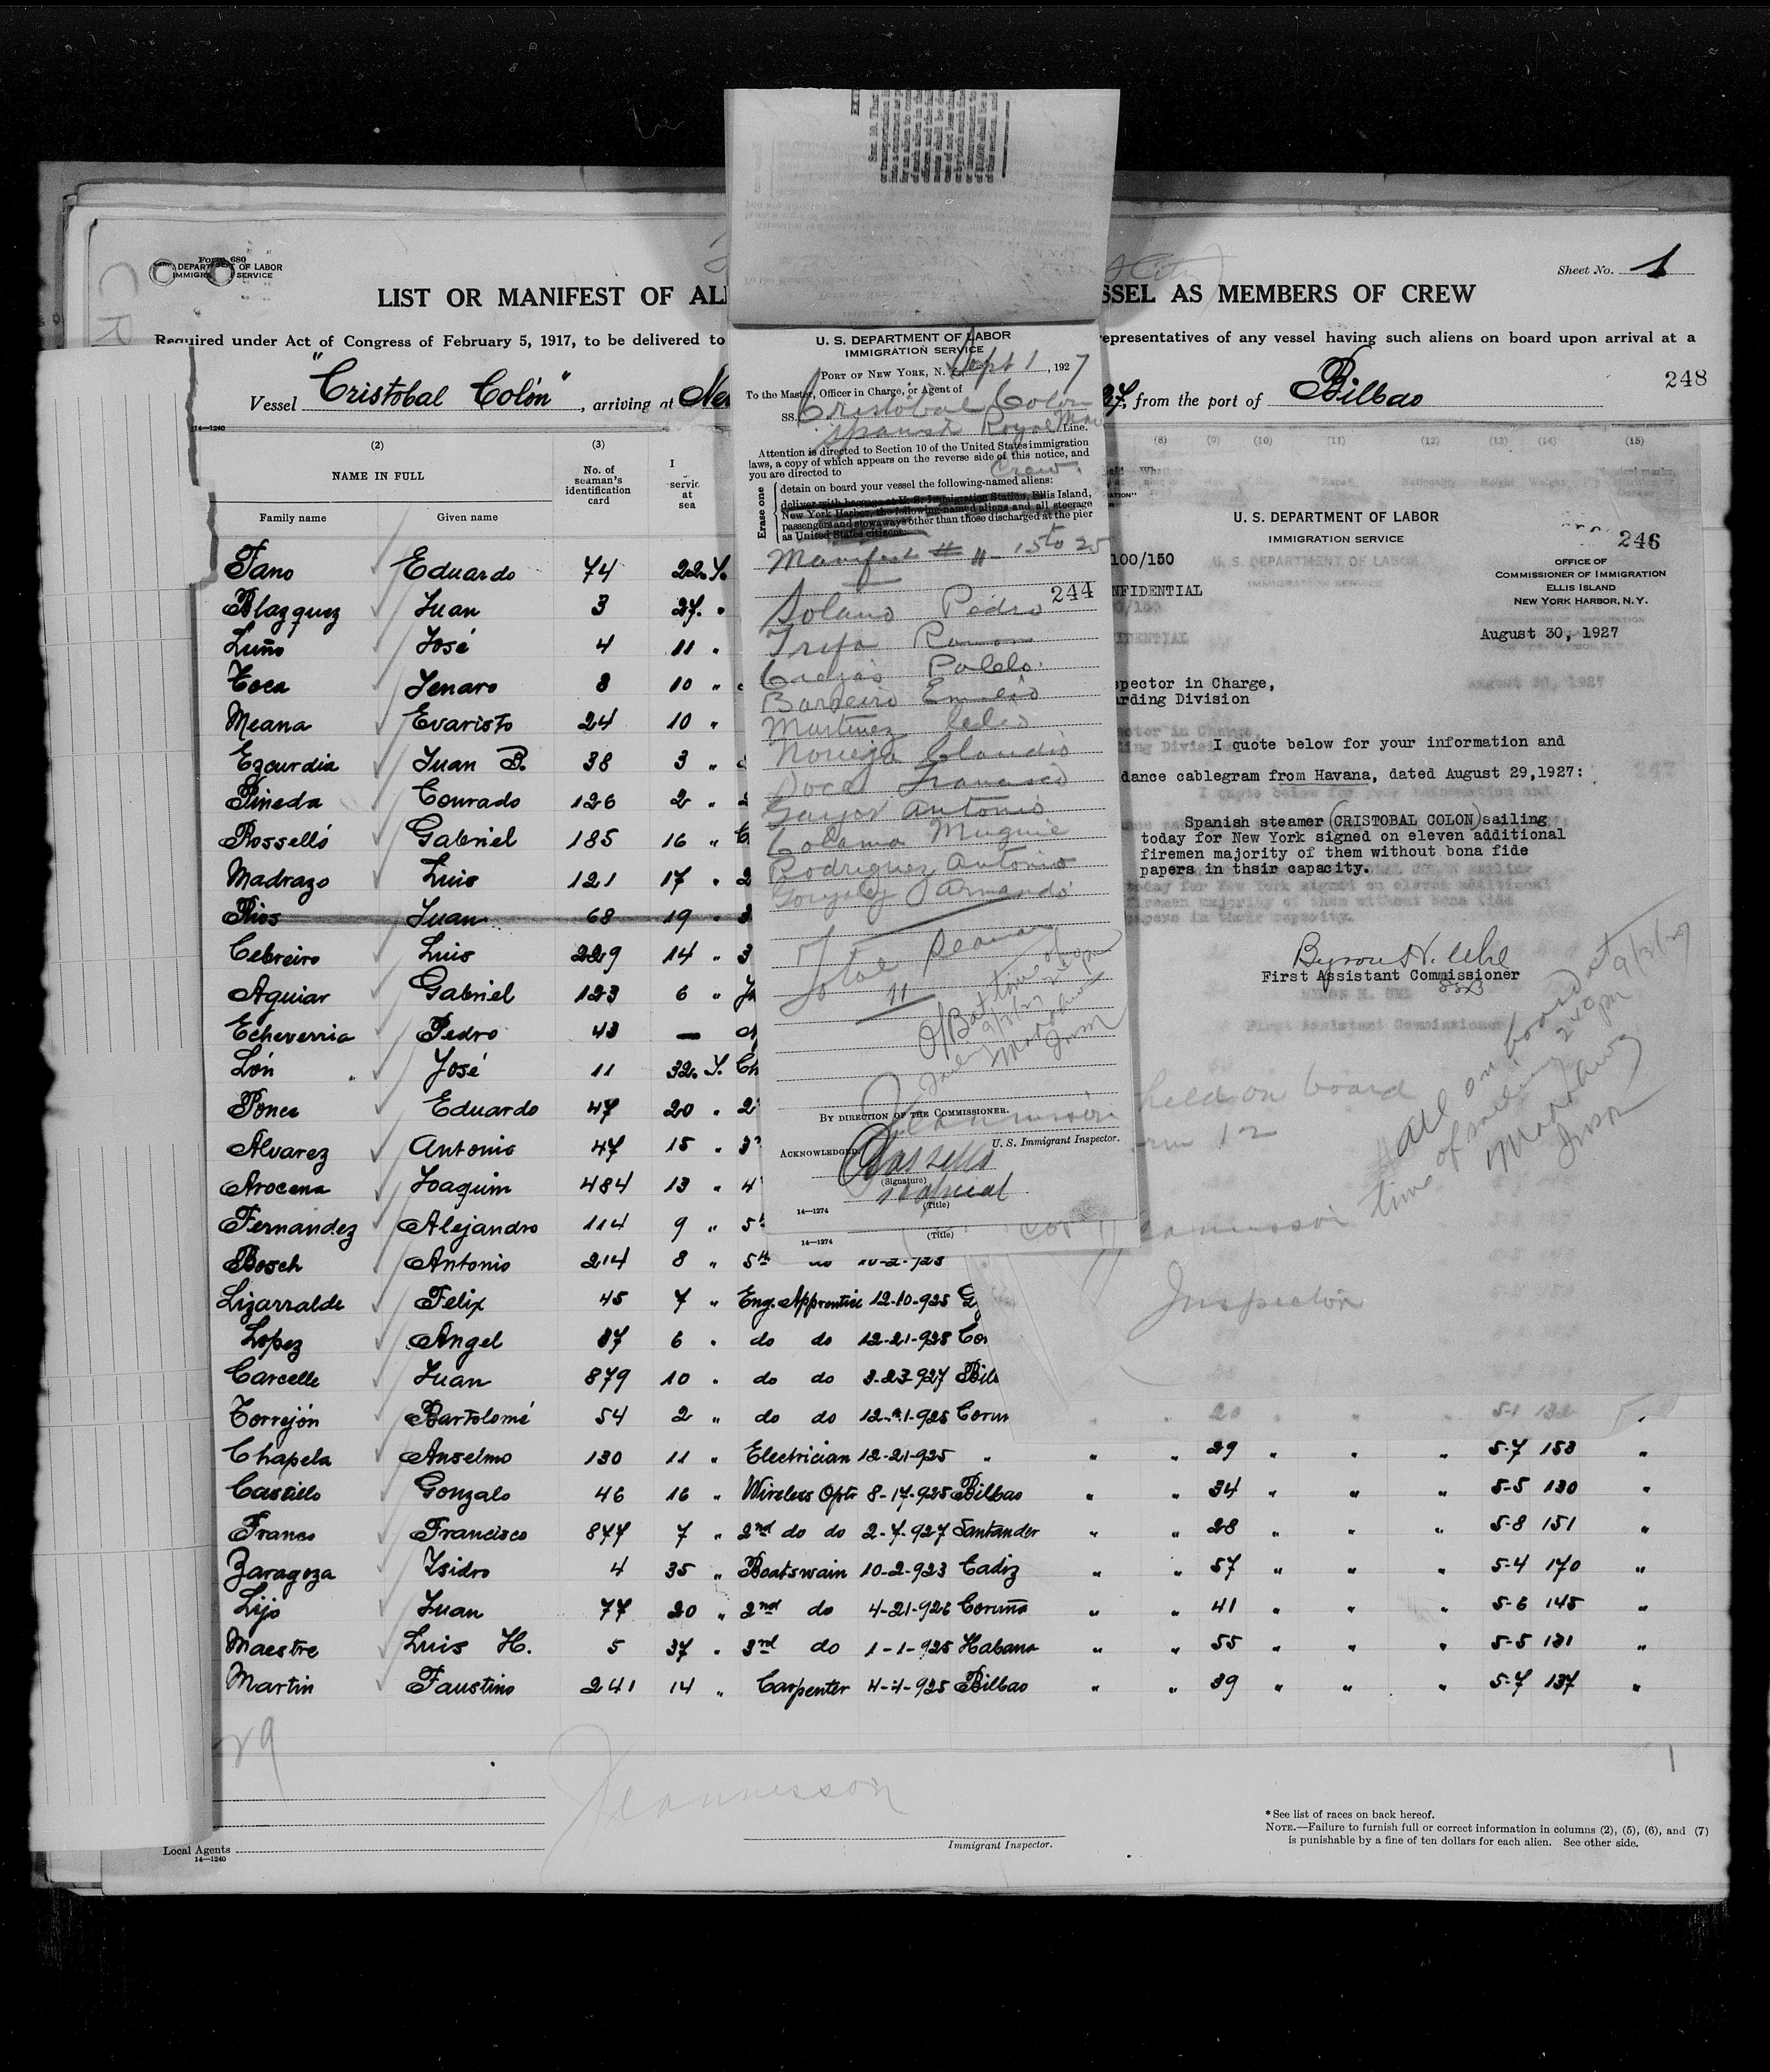 Form 680
DEPARTMENT OF LABOR
IMMIGRATION SERVICE
Sheet No. 1
LIST OR MANIFEST OF AL
SSEL AS MEMBERS OF CREW
Required under Act of Congress of February 5, 1917, to be delivered to
representatives of any vessel having such aliens on board upon arrival at a
248
Vessel "Cristobal Colón", arriving at Ne
27, from the port of Bilbao
14—1240
(2) (3)
(8) (9) (10) (11) (12) (13) (14) (15)
NAME IN FULL
No. of seaman's identification card
servic at sea
Family name Given name
Fano Eduardo 74 22 Y.
Blazquez Juan 3 27 "
Luño José 4 11 "
Toca Jenaro 8 10 "
Meana Evaristo 24 10 "
Ezcurdia Juan B. 38 3 "
Pineda Conrado 126 2 "
Rosselló Gabriel 185 16 " C
Madrazo Luis 121 17 " 2
Rios Juan 68 19 " 3
Cebreiro Luis 229 14 " 3
Aguiar Gabriel 123 6 "
Echeverria Pedro 43 —
Lón José 11 32 Y. Ch
Ponce Eduardo 47 20 " 2
Alvarez Antonio 47 15 " 3
Arocena Joaquim 484 13 " 4
Fernandez Alejandro 114 9 " 5
Bosch Antonio 214 8 " 5th
Lizarralde Felix 45 7 " Eng. Apprentice 12-10-925 G
Lopez Angel 87 6 " do do 12-21-925 Cor
Carcelle Juan 879 10 " do do 3-23-927 Bilb
Torrejón Bartolomé 54 2 " do do 12-21-925 Corun " " 20 " " " 5-1 132 "
Chapela Anselmo 130 11 " Electrician 12-21-925 " " " 29 " " " 5-7 153 "
Castillo Gonzalo 46 16 " Wireless Optr 8-17-925 Bilbao " " 34 " " " 5-5 130 "
Franco Francisco 877 7 " 2nd do do 2-7-927 Santander " " 28 " " " 5-8 151 "
Zaragoza Ysidro 4 35 " Boatswain 10-2-923 Cadiz " " 57 " " " 5-4 170 "
Lijo Juan 77 20 " 2nd do 4-21-926 Coruña " " 41 " " " 5-6 145 "
Maestre Luis H. 5 37 " 3rd do 1-1-925 Habana " " 55 " " " 5-5 131 "
Martin Faustino 241 14 " Carpenter 4-4-925 Bilbao " " 39 " " " 5-7 137 "
29
Jeannisson
Local Agents
14—1240
Immigrant Inspector.
* See list of races on back hereof.
NOTE.—Failure to furnish full or correct information in columns (2), (5), (6), and (7)
is punishable by a fine of ten dollars for each alien. See other side.
U. S. DEPARTMENT OF LABOR
IMMIGRATION SERVICE
PORT OF NEW YORK, N. Y. Sept 1, 1927
To the Master, Officer in Charge, or Agent of
SS. Cristobal Colon
Spanish Royal Mail Line.
Attention is directed to Section 10 of the United States immigration
laws, a copy of which appears on the reverse side of this notice, and
you are directed to Crew.
Erase one
detain on board your vessel the following-named aliens:
deliver with baggage at U. S. Immigration Station, Ellis Island,
New York Harbor, the following-named aliens and all steerage
passengers and stowaways other than those discharged at the pier
as United States citizens.
Manifest # 15 to 25
244
Solano Pedro
Trefa Ramon
Pablo
Barreiro Emilio
Martinez Celio
Norieja Claudio
Docal Francisco
Gayor Antonio
Coloma
Rodriguez Antonio
Gonzalez Armando
Total Seaman
11
BY DIRECTION OF THE COMMISSIONER.
Jeannisson
U. S. Immigrant Inspector.
ACKNOWLEDGED:
(Signature)
(Title)
14—1274
(Title)
14—1274
U. S. DEPARTMENT OF LABOR
IMMIGRATION SERVICE
246
100/150
OFFICE OF
COMMISSIONER OF IMMIGRATION
ELLIS ISLAND
NEW YORK HARBOR, N.Y.
NFIDENTIAL
August 30, 1927
spector in Charge,
rding Division
I quote below for your information and
dance cablegram from Havana, dated August 29,1927:
Spanish steamer (CRISTOBAL COLON) sailing
today for New York signed on eleven additional
firemen majority of them without bona fide
papers in thsir capacity.
Byron H. Uhl
First Assistant Commissioner
held on board
All on board at
time of sailing 240pm
9/3/27
Jeannisson
Inspector